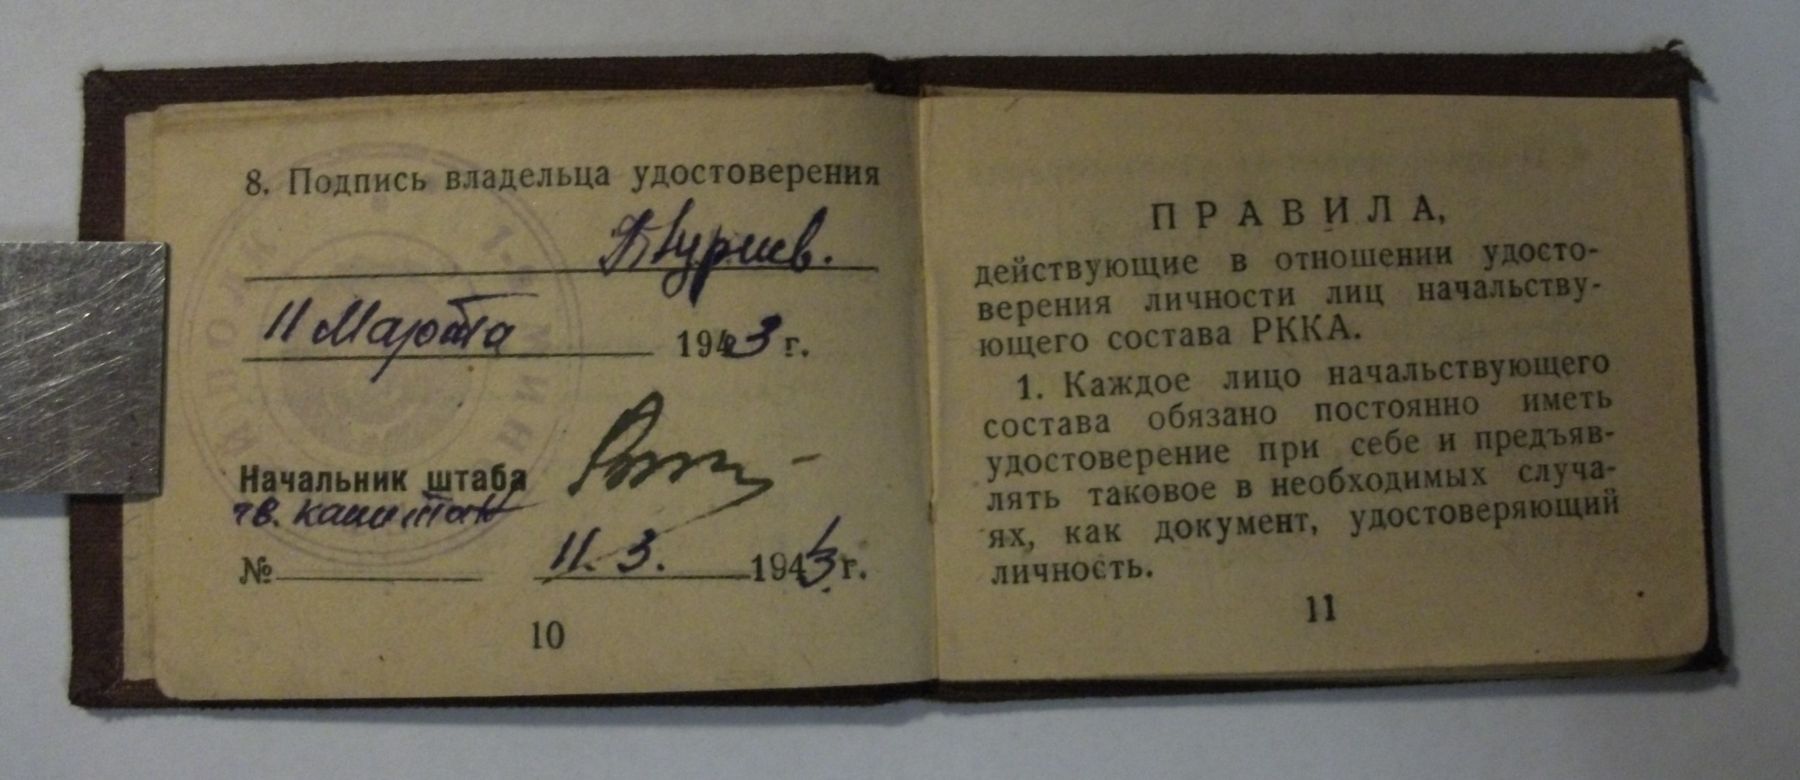 8. Подпись владельца удостоверения
11 Марта 1943 г.
Начальник штаба
гв. капитан
№ 11. 3. 1943 г.
10
ПРАВИЛА,
действующие в отношении удосто-
верения личности лиц начальству-
ющего состава РККА.
1. Каждое лицо начальствующего
состава обязано постоянно иметь
удостоверение при себе и предъяв-
лять таковое в необходимых случа-
ях, как документ, удостоверяющий
личность.
11